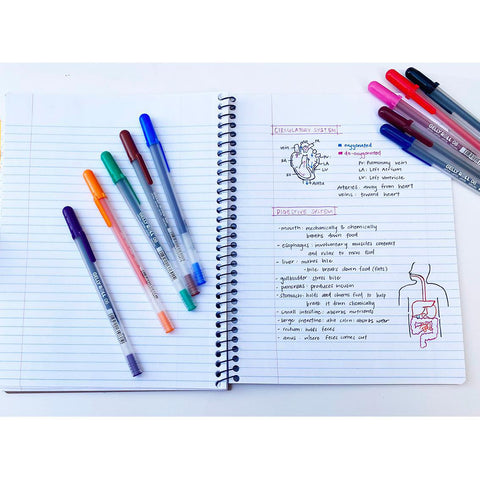 CIRCULATORY SYSTEM
vein
Aorta
oxygenated
de-oxygenated
PV: Pulmonary vein
LA: Left Atrium
LV: Left Ventricle
Arteries: away from heart
veins: toward heart
DIGESTIVE SYSTEM
- mouth: mechanically & chemically
breaks down food
- esophagus: involuntary muscles contract
and relax to move food
- liver: makes bile
- bile breaks down food (fats)
- gallbladder stores bile
- pancreas: produces insulin
- stomach: holds and churns food to help
break it down chemically
- small intestine: absorbs nutrients
- large intestine: aka colon: absorbs water
- rectum: holds feces
- anus: where feces comes out
GELLY ROLL